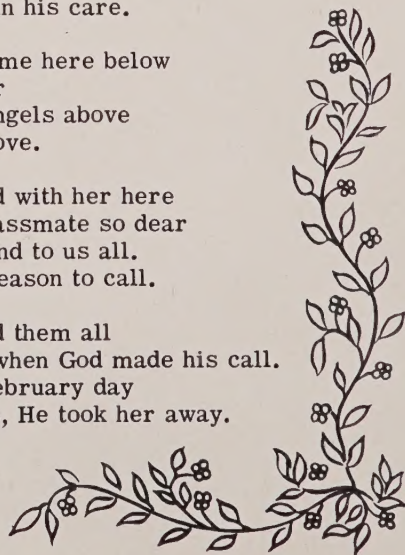 n his care.
me here below
r
ngels above
ove.
d with her here
assmate so dear
nd to us all.
eason to call.
d them all
when God made his call.
ebruary day
, He took her away.